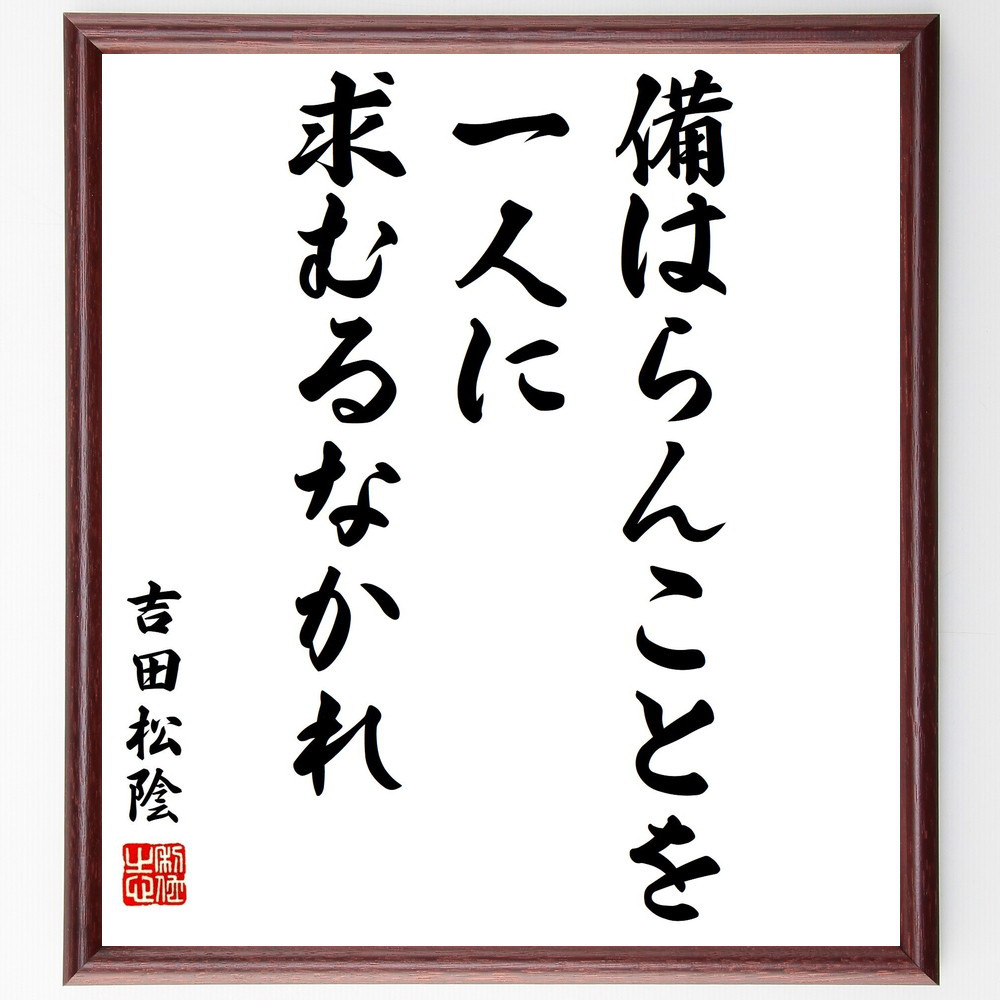 備はらんことを
一人に
求むるなかれ
吉田松陰